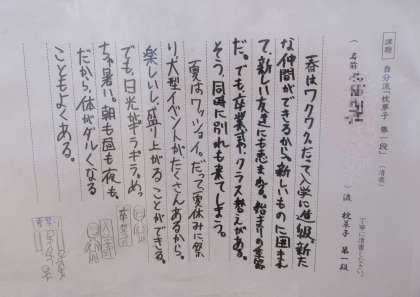 課題 自分流「枕草子 第一段」(清書)
丁寧に清書しなさい。
(名前 ) 流 枕草子 第一段
春はワクワク。だって入学に進級。新た
な仲間ができるから。新しいものに囲まれ
て、新しい友達にも恵まれる。始まりの季節
だ。でも、卒業式、クラス替えがある。
そう、同時に別れも来てしまう。
夏はワッショイ。だって夏休みに祭
り、大型イベントがたくさんあるから。
楽しいし、盛り上がることができる。
でも、日光がギラギラ。めっ
ちゃ暑い。朝も昼も夜も、
だから、体がダルくなる
こともよくある。